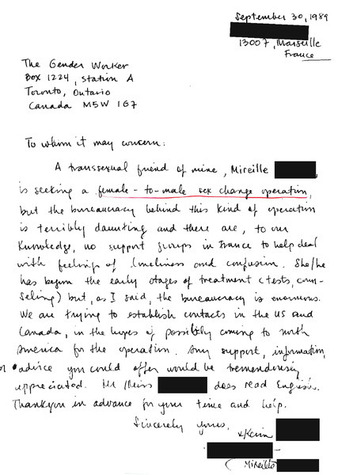 September 30, 1989
13007, Marseille
France
The Gender Worker
Box 1224, Station A
Toronto, Ontario
Canada M5W 1G7
To whom it may concern:
A transsexual friend of mine, Mireille
is seeking a female-to-male sex change operation,
but the bureaucracy behind this kind of operation
is terribly daunting and there are, to our
knowledge, no support groups in France to help deal
with feelings of loneliness and confusion. She/he
has begun the early stages of treatment (tests, coun-
seling) but, as I said, the bureaucracy is enormous.
We are trying to establish contacts in the US and
Canada, in the hopes of possibly coming to north
America for the operation. Any support, information,
or advice you could offer would be tremendously
appreciated. Mr/Miss does read English.
Thankyou in advance for your time and help.
Sincerely yours,
Mireille